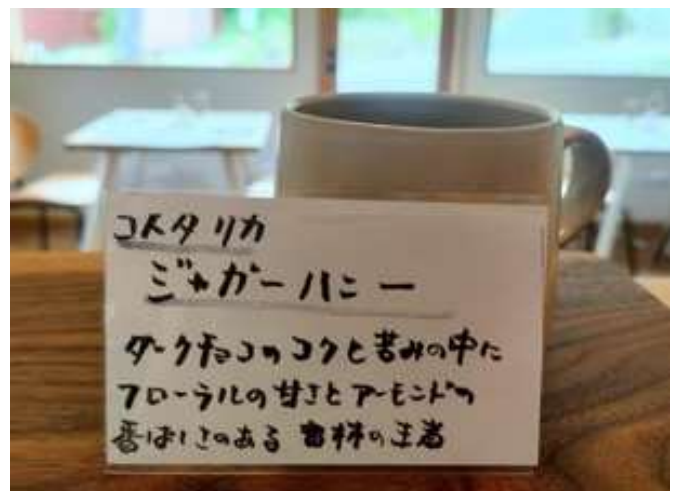 コスタリカ
ジャガーハニー
ダークチョコのコクと苦みの中に
フローラルの甘さとアーモンドの
香ばしさのある 密林の王者